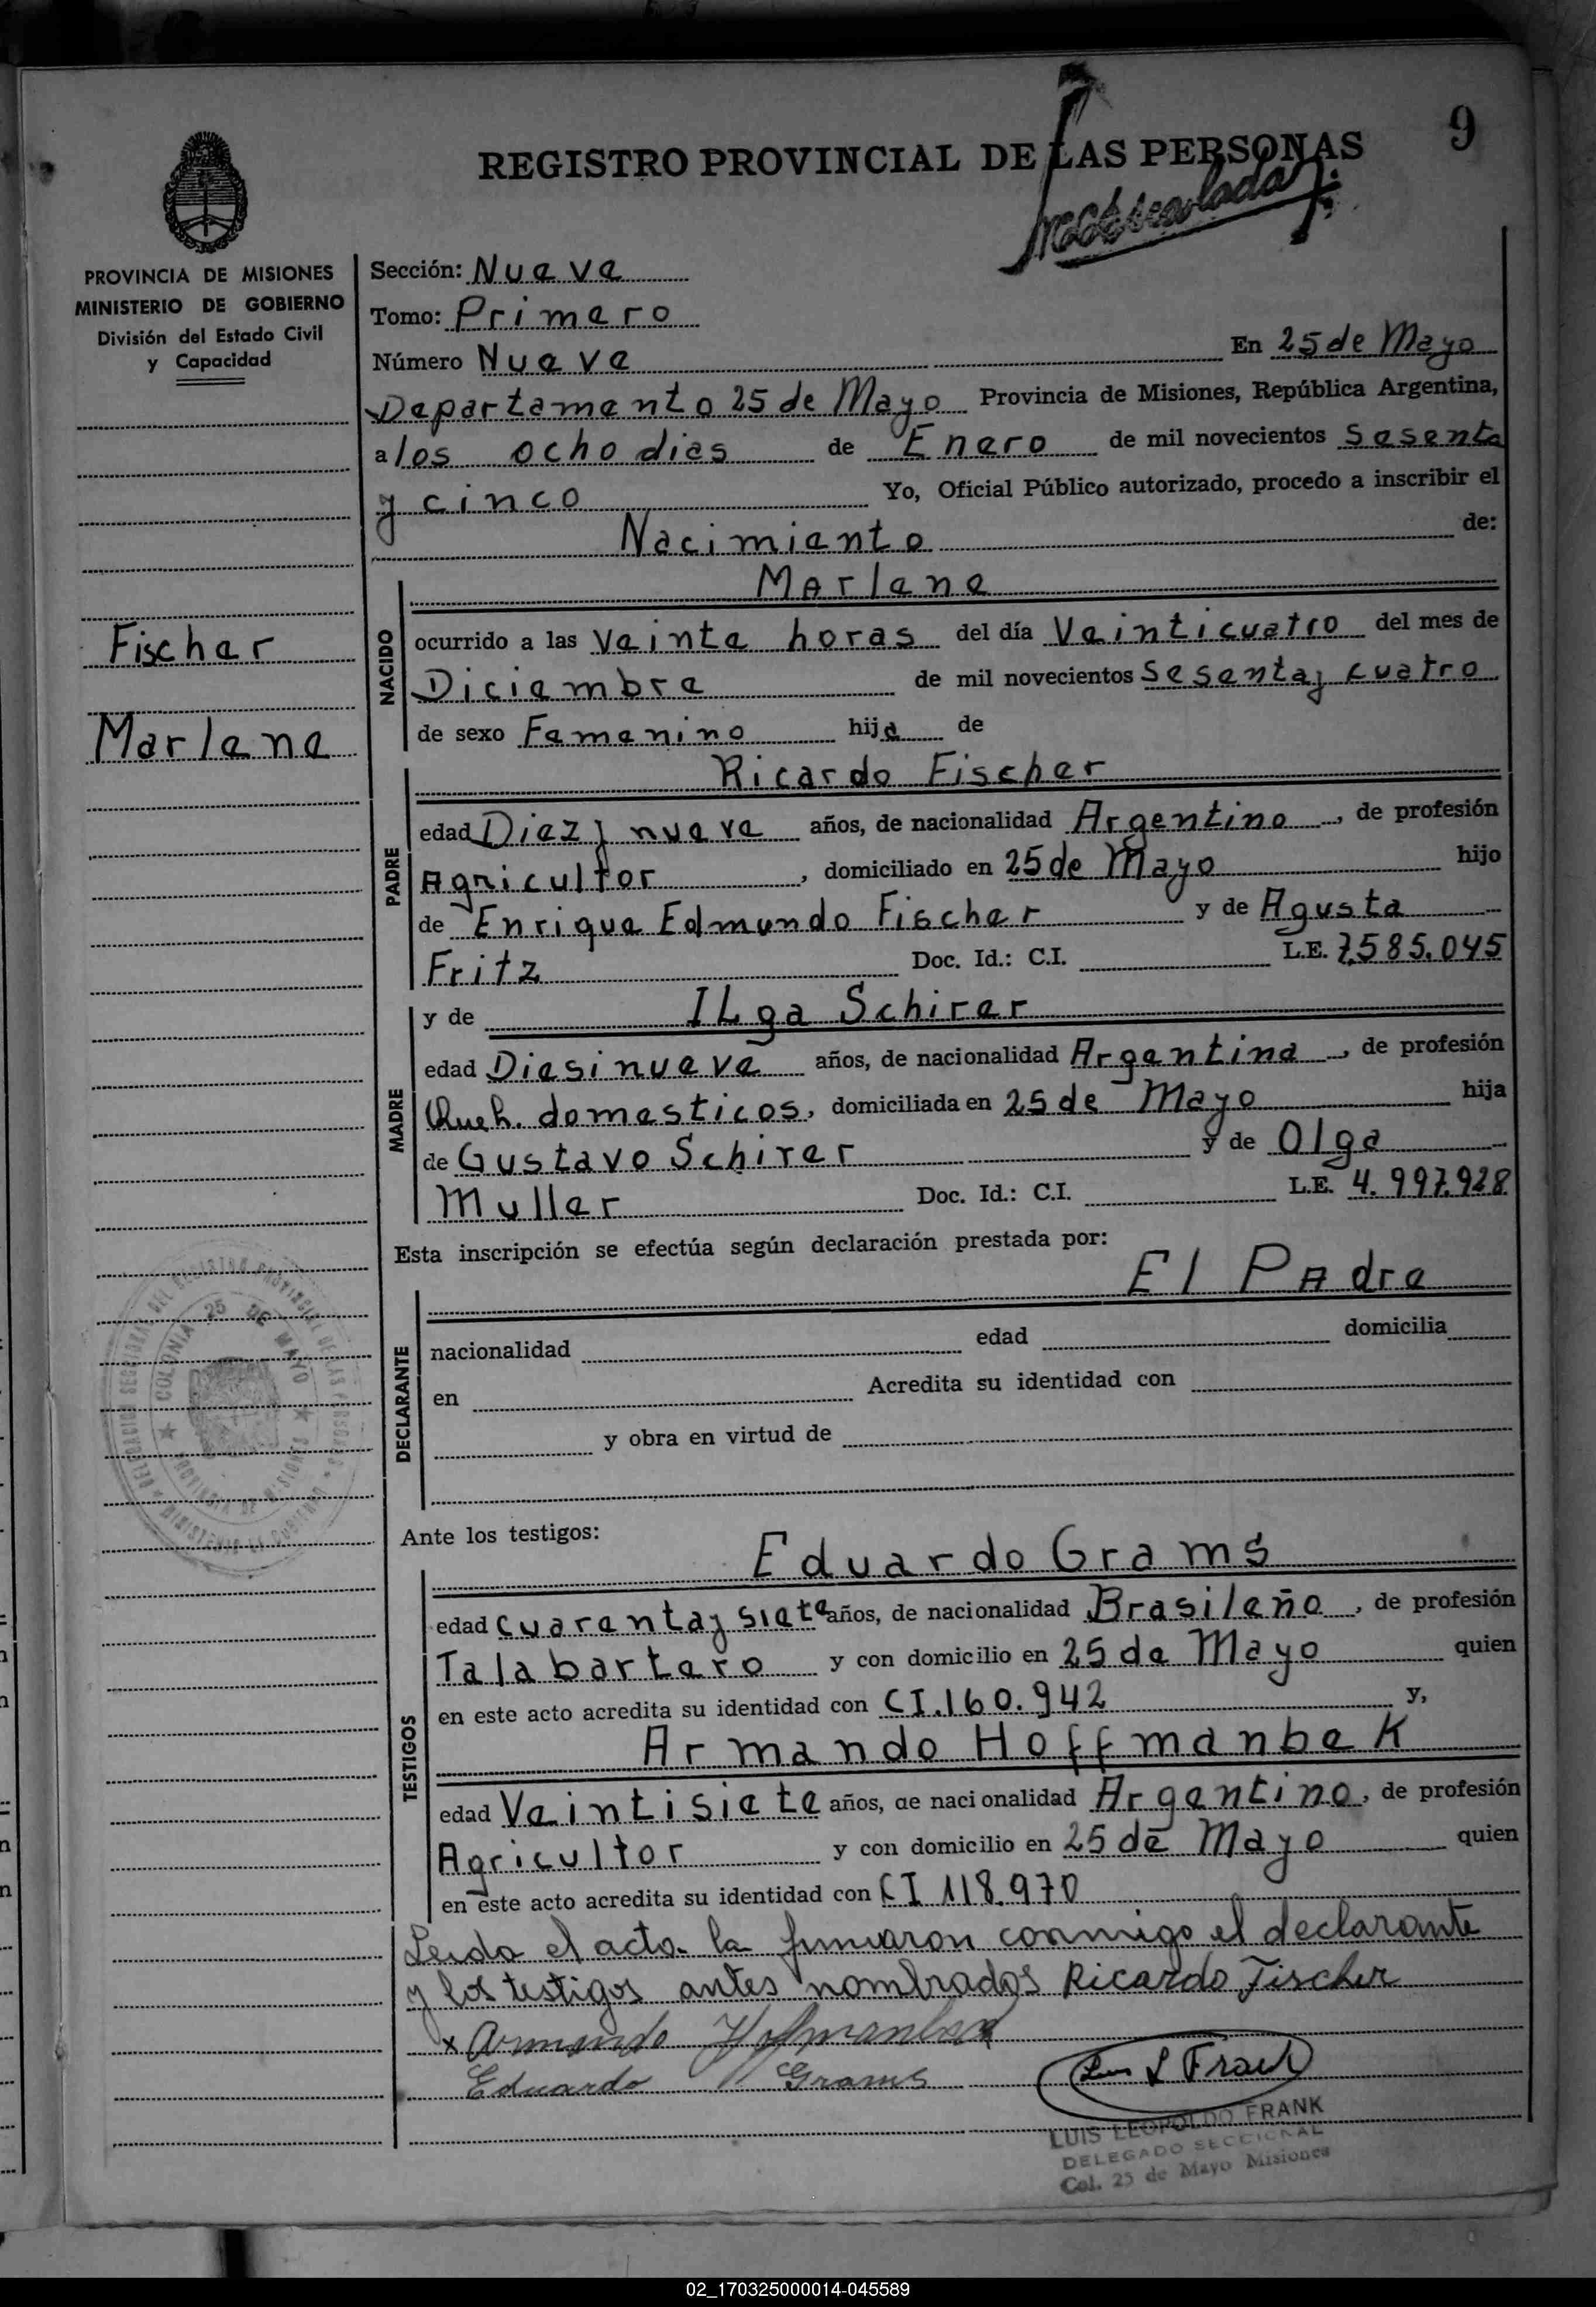 9
REGISTRO PROVINCIAL DE LAS PERSONAS
PROVINCIA DE MISIONES
MINISTERIO DE GOBIERNO
División del Estado Civil
y Capacidad
Fischer
Marlene
Sección: Nueve
Tomo: Primero
Número Nueve En 25 de Mayo
Departamento 25 de Mayo Provincia de Misiones, República Argentina,
a los ocho dies de Enero de mil novecientos Sesenta
y cinco Yo, Oficial Público autorizado, procedo a inscribir el
Nacimiento de:
NACIDO
Marlene
ocurrido a las Veinte horas del día Veinticuatro del mes de
Diciembre de mil novecientos Sesenta y cuatro
de sexo Femenino hija de
PADRE
Ricardo Fischer
edad Diez y nueve años, de nacionalidad Argentino, de profesión
Agricultor, domiciliado en 25 de Mayo hijo
de Enrique Edmundo Fischer y de Agusta
Fritz Doc. Id.: C.I. L.E. 7.585.045
MADRE
y de ILga Schirer
edad Diesinueve años, de nacionalidad Argentina, de profesión
Queh. domesticos, domiciliada en 25 de Mayo hija
de Gustavo Schirer y de Olga
Muller Doc. Id.: C.I. L.E. 4.997.928
Esta inscripción se efectúa según declaración prestada por:
El Padre
DECLARANTE
nacionalidad edad domicilia
en Acredita su identidad con
y obra en virtud de
Ante los testigos:
TESTIGOS
Eduardo Grams
edad cuarenta y siete años, de nacionalidad Brasileño, de profesión
Talabartero y con domicilio en 25 de Mayo quien
en este acto acredita su identidad con CI.160.942 y,
Armando Hoffmanbek
edad Veintisiete años, de nacionalidad Argentino, de profesión
Agricultor y con domicilio en 25 de Mayo quien
en este acto acredita su identidad con CI 118.970
Leida el acta la firmaron conmigo el declarante
y los testigos antes nombrados Ricardo Fischer
x Armando
Eduardo Grams
Luis L Frank
LUIS LEOPOLDO FRANK
DELEGADO SECCIONAL
Col. 25 de Mayo Misiones
COLONIA 25 DE MAYO
PROVINCIA DE MISIONES
02_170325000014-045589